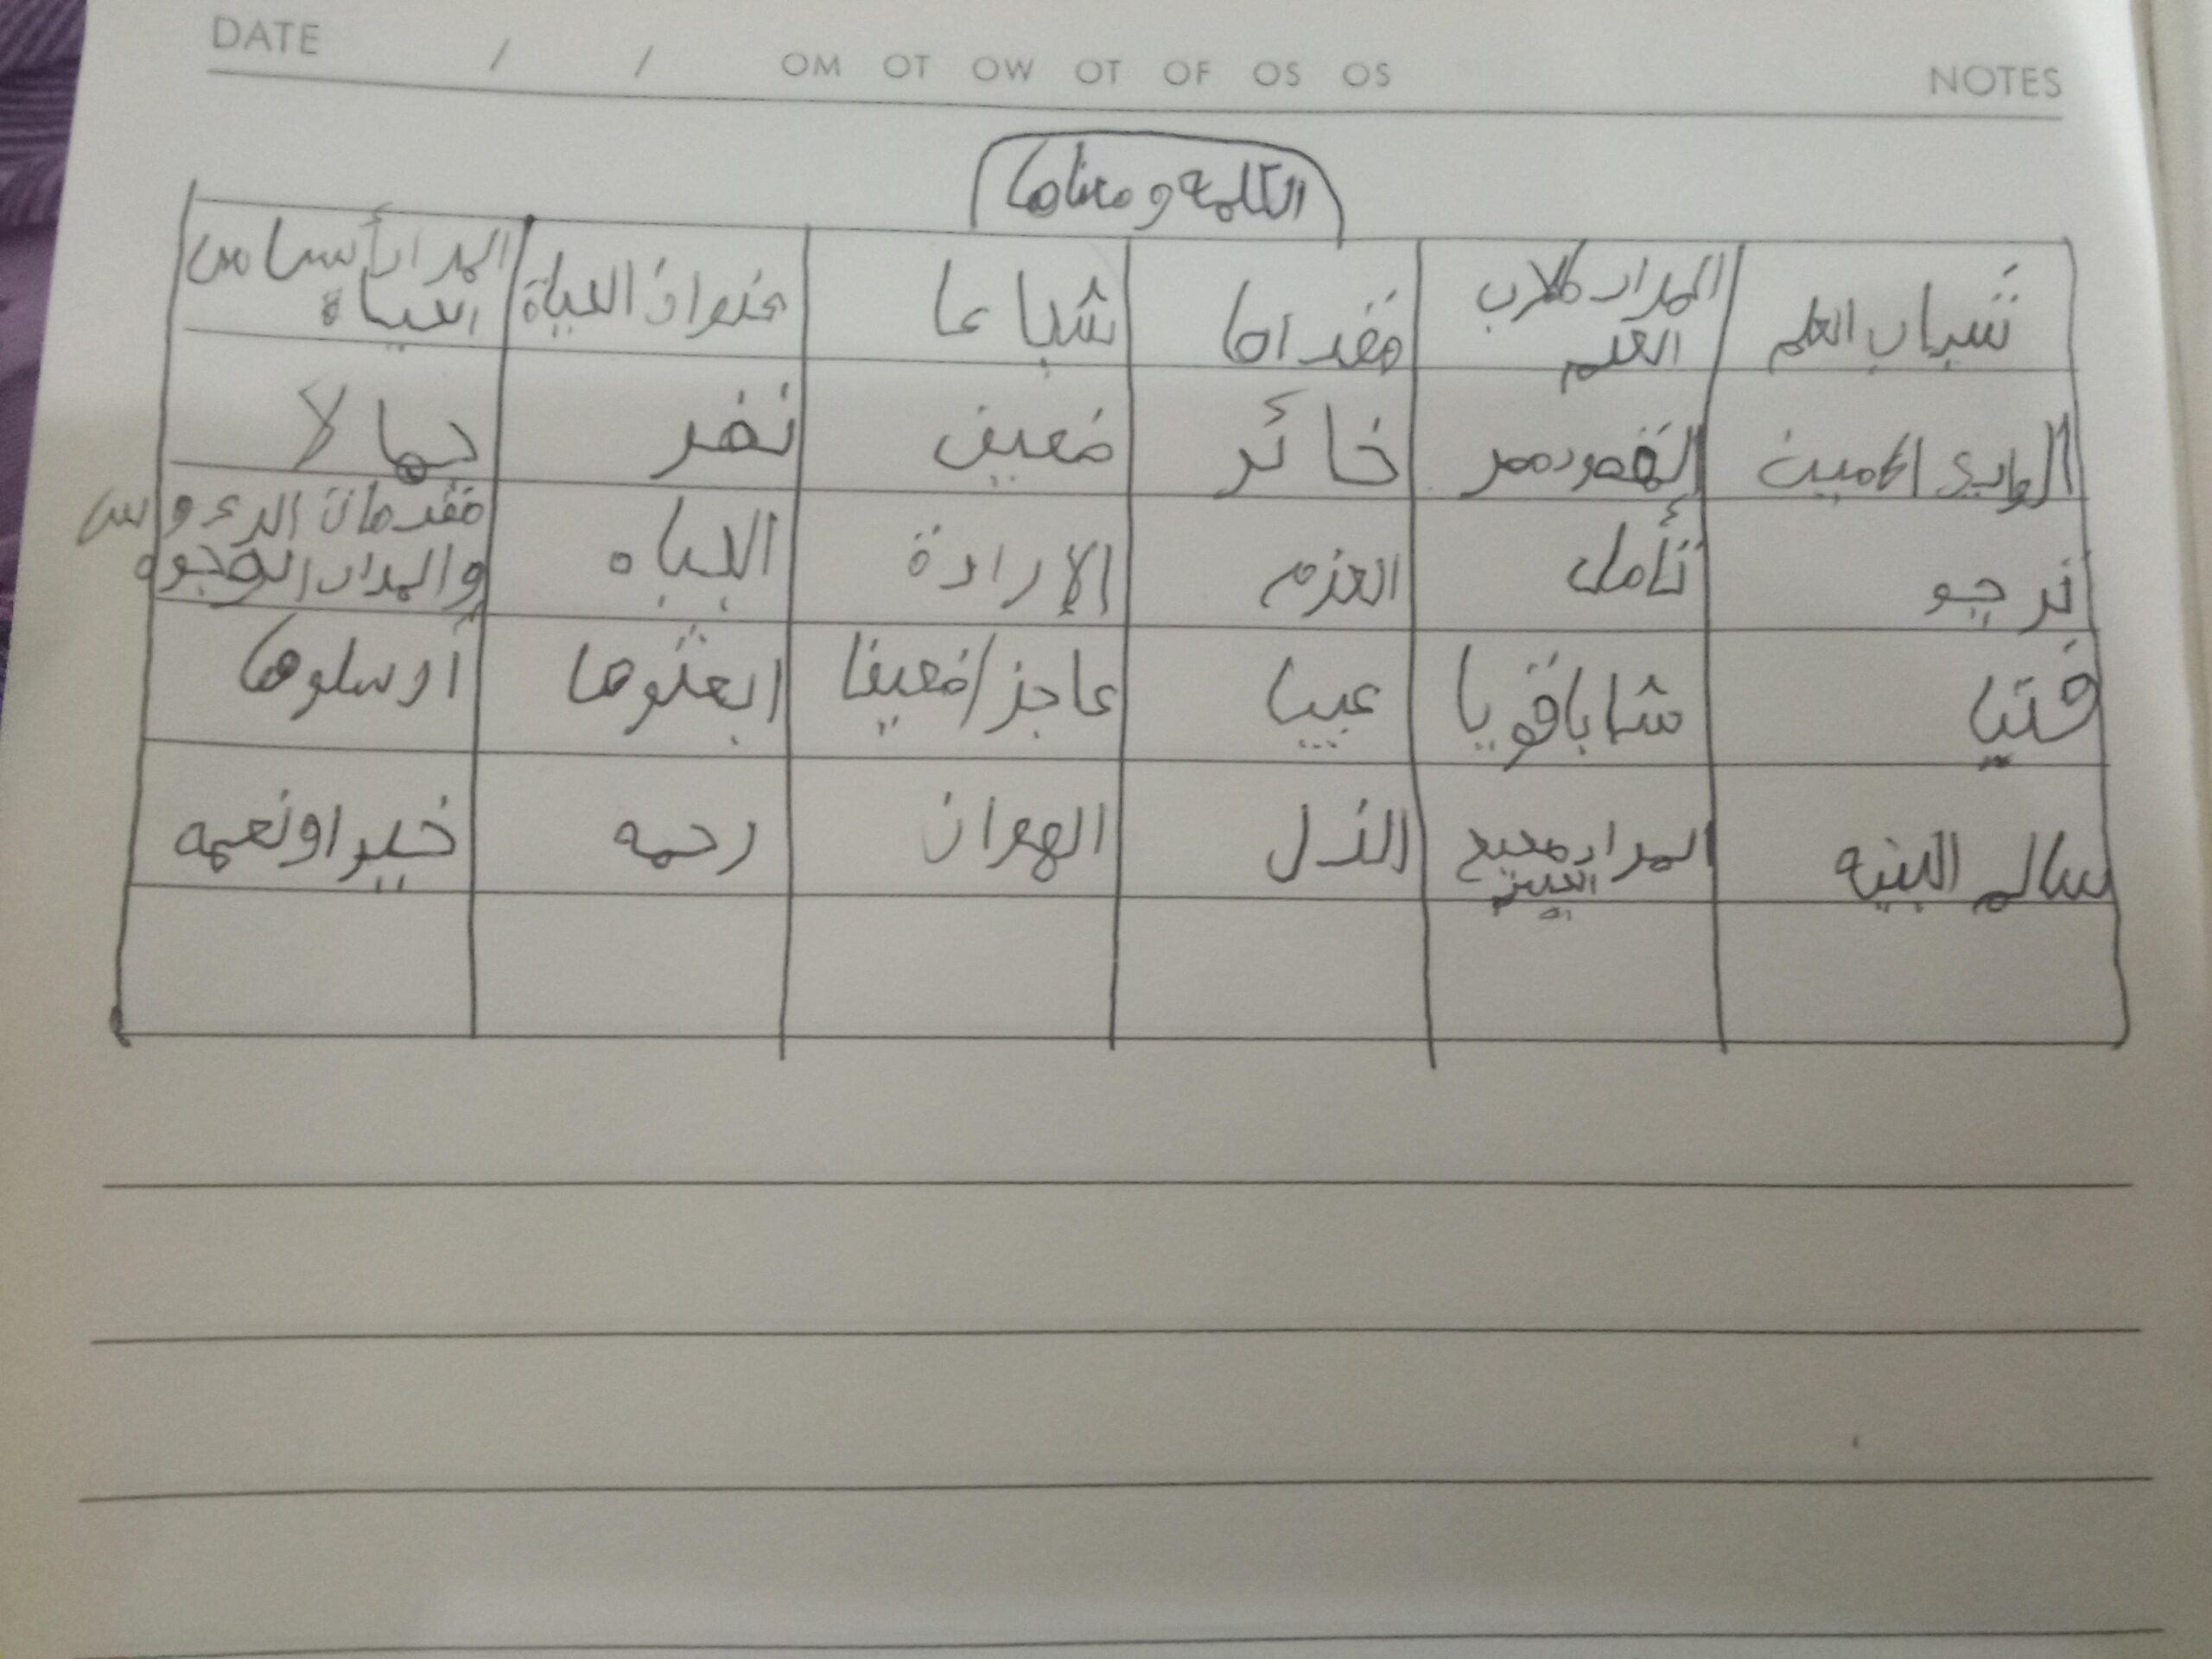 DATE / / OM OT OW OT OF OS OS NOTES
الكلمة ومعناها
شباب العلم المراد طلاب العلم مقداما شجاعا عنوان الحياة المراد أساس الحياة
الوادي الامين المقصود مصر خائر ضعيف نضر جمالا
نرجو نأمل العزم الإرادة الجباه مقدمات الرءوس والمراد الوجوه
فتيا شابا قويا عييا عاجز/ضعيفا ابعثوها أرسلوها
سالم البنيه المراد صحيح الذل الهوان رحمه خيرا ونعمه